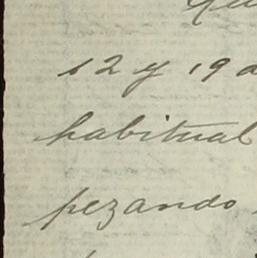 12 y 19 a
habitual
pezando